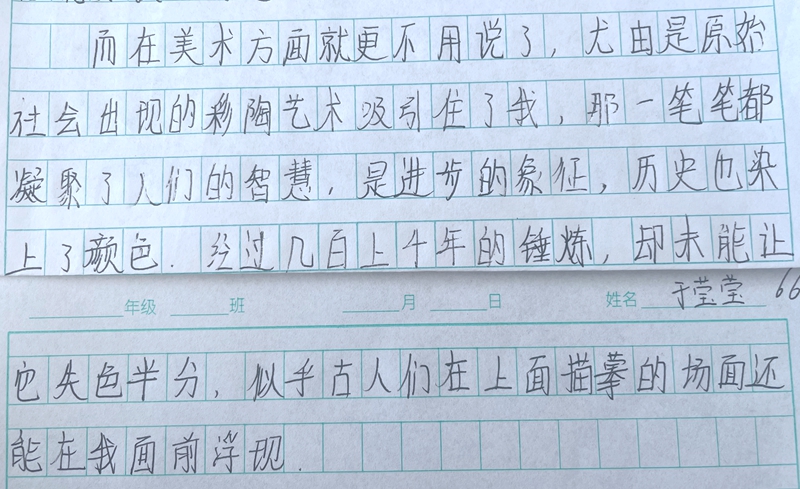 而在美术方面就更不用说了，尤由是原始
社会出现的彩陶艺术吸引住了我，那一笔笔都
凝聚了人们的智慧，是进步的象征，历史也染
上了颜色．经过几百上千年的锤炼，却未能让
年级 班 月 日 姓名 于莹莹 66
它失色半分，似乎古人们在上面描摹的场面还
能在我面前浮现．